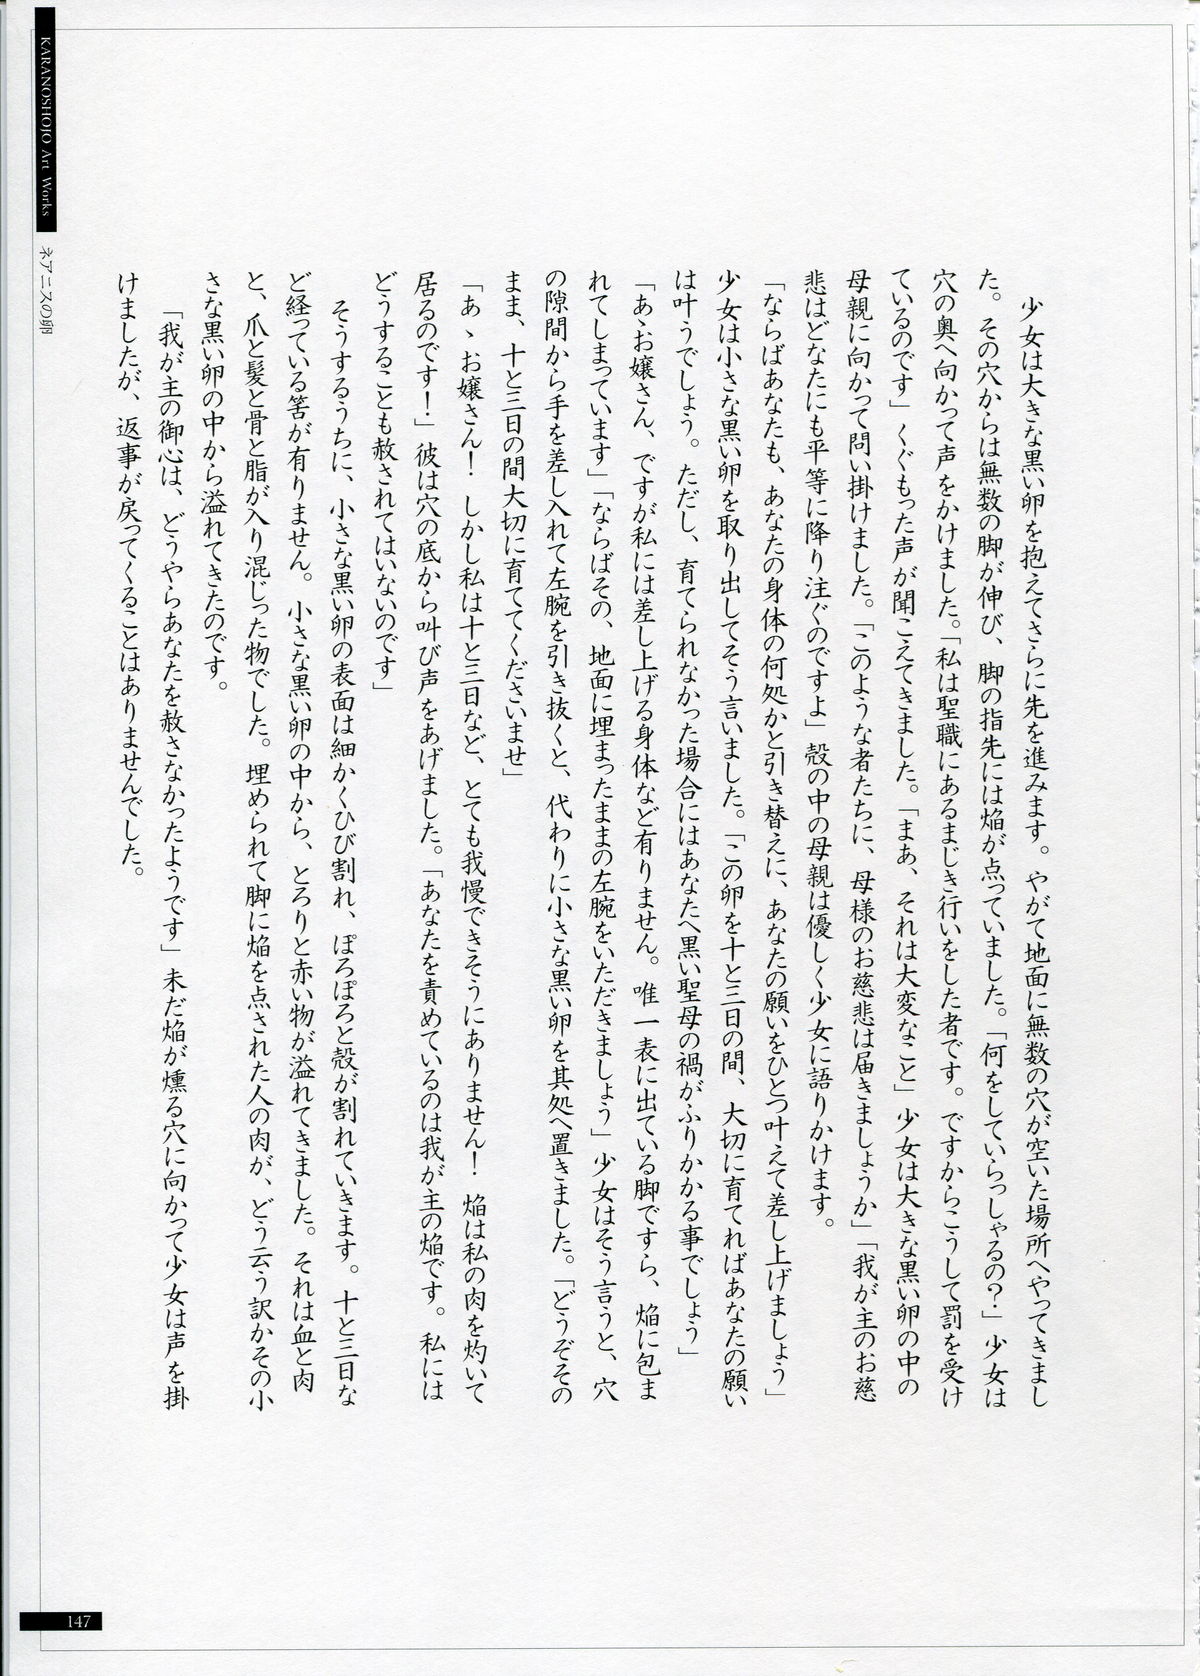 KARANOSHOJO Art Works
ネアニスの卵
少女は大きな黒い卵を抱えてさらに先を進みます。やがて地面に無数の穴が空いた場所へやってきまし
た。その穴からは無数の脚が伸び、脚の指先には焔が点っていました。「何をしていらっしゃるの？」少女は
穴の奥へ向かって声をかけました。「私は聖職にあるまじき行いをした者です。ですからこうして罰を受け
ているのです」くぐもった声が聞こえてきました。「まあ、それは大変なこと」少女は大きな黒い卵の中の
母親に向かって問い掛けました。「このような者たちに、母様のお慈悲は届きましょうか」「我が主のお慈
悲はどなたにも平等に降り注ぐのですよ」殻の中の母親は優しく少女に語りかけます。
「ならばあなたも、あなたの身体の何処かと引き替えに、あなたの願いをひとつ叶えて差し上げましょう」
少女は小さな黒い卵を取り出してそう言いました。「この卵を十と三日の間、大切に育てればあなたの願い
は叶うでしょう。ただし、育てられなかった場合にはあなたへ黒い聖母の禍がふりかかる事でしょう」
「あゝお嬢さん、ですが私には差し上げる身体など有りません。唯一表に出ている脚ですら、焔に包ま
れてしまっています」「ならばその、地面に埋まったままの左腕をいただきましょう」少女はそう言うと、穴
の隙間から手を差し入れて左腕を引き抜くと、代わりに小さな黒い卵を其処へ置きました。「どうぞその
まま、十と三日の間大切に育ててくださいませ」
「あゝお嬢さん！　しかし私は十と三日など、とても我慢できそうにありません！　焔は私の肉を灼いて
居るのです！」彼は穴の底から叫び声をあげました。「あなたを責めているのは我が主の焔です。私には
どうすることも赦されてはいないのです」
そうするうちに、小さな黒い卵の表面は細かくひび割れ、ぽろぽろと殻が割れていきます。十と三日な
ど経っている筈が有りません。小さな黒い卵の中から、とろりと赤い物が溢れてきました。それは血と肉
と、爪と髪と骨と脂が入り混じった物でした。埋められて脚に焔を点された人の肉が、どう云う訳かその小
さな黒い卵の中から溢れてきたのです。
「我が主の御心は、どうやらあなたを赦さなかったようです」未だ焔が燻る穴に向かって少女は声を掛
けましたが、返事が戻ってくることはありませんでした。
147